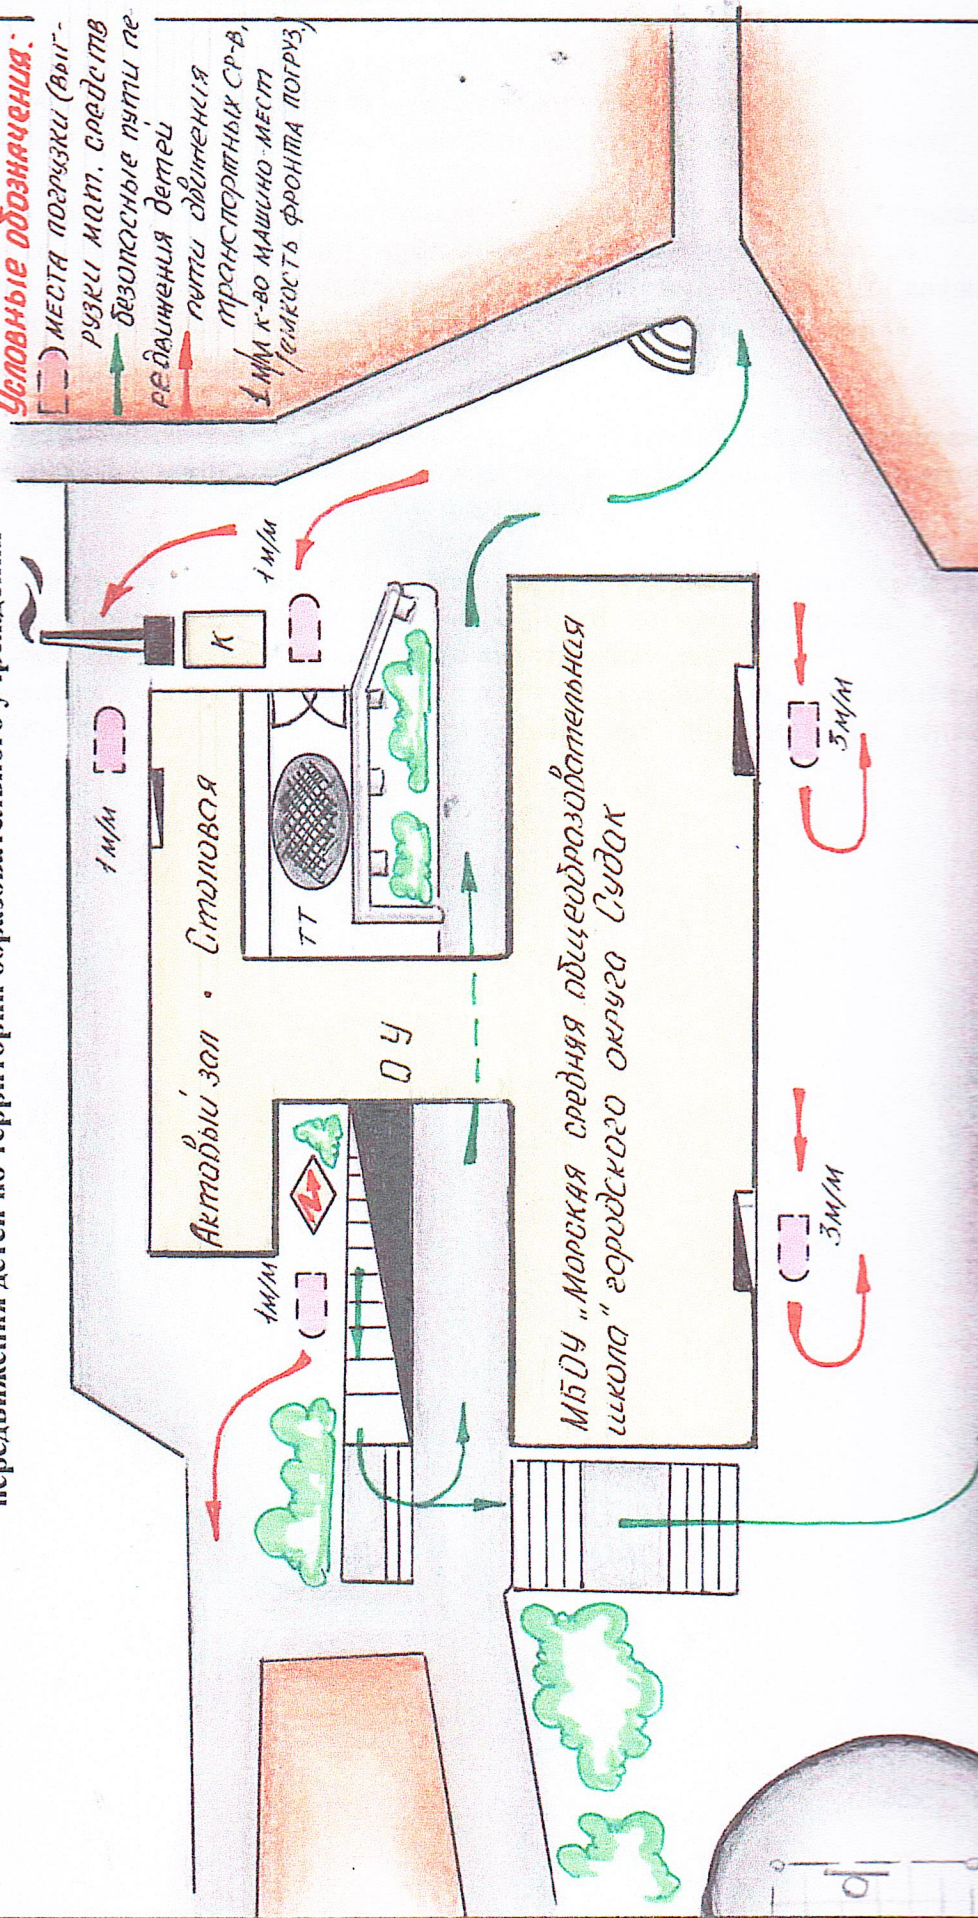 передвижения детей по территории образовательного учреждения
Условные обозначения:
МЕСТА ПОГРУЗКИ (ВЫГ-
РУЗКИ МАТ. СРЕДСТВ
безопасные пути пе-
редвижения детей
пути движения
транспортных СР-В,
1 М/М К-ВО МАШИНО-МЕСТ
/ЕМКОСТЬ ФРОНТА ПОГРУЗ/
1 М/М
К
1 М/М
Актовый зал . Столовая
ТТ
1 М/М
ОУ
МБОУ „Морская средняя общеобразовательная
школа" городского округа Судак
3 М/М
3 М/М